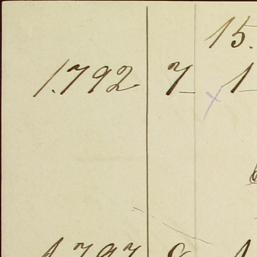 15.
1.792 7 1
1.797 8 1